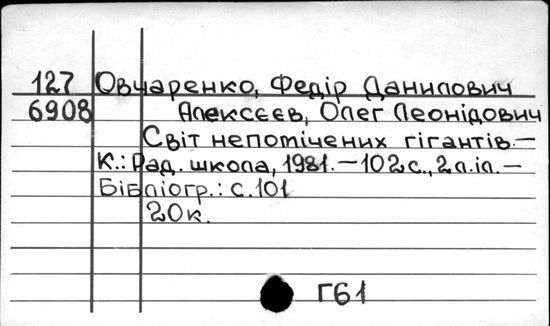 127 Овчаренко, Федір Данилович
6908 Алексєєв, Олег Леонідович
Світ непомічених гігантів.—
К.: Рад. школа, 1981.— 102 с., 2 л.іл.—
Бібліогр.: с.101
20к.
Г61